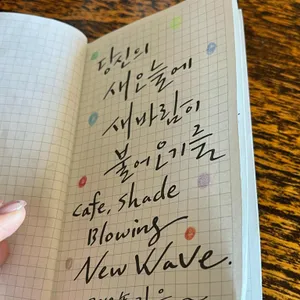 당신의
새오늘에
새바람이
불어오기를
cafe, shade
Blowing
New Wave.